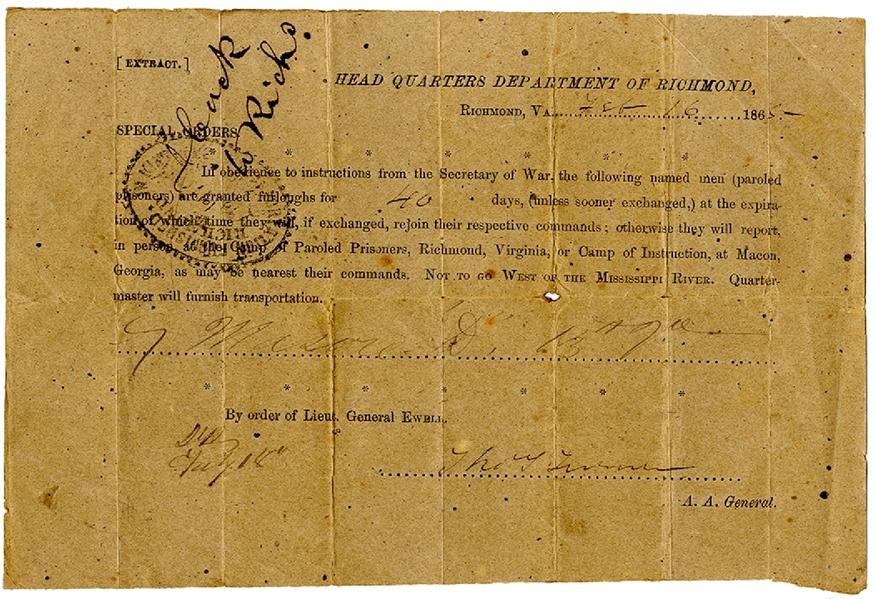 [EXTRACT.]
back
to Rich.
HEAD QUARTERS DEPARTMENT OF RICHMOND,
RICHMOND, VA. Feb 16 1865
SPECIAL ORDERS
* * * * * * * *
In obedience to instructions from the Secretary of War, the following named men (paroled
prisoners) are granted furloughs for 40 days, (unless sooner exchanged,) at the expira-
tion of which time they will, if exchanged, rejoin their respective commands; otherwise they will report,
in person, at the Camp of Paroled Prisoners, Richmond, Virginia, or Camp of Instruction, at Macon,
Georgia, as may be nearest their commands. NOT TO GO WEST OF THE MISSISSIPPI RIVER. Quarter-
master will furnish transportation.
D. 15 Va
* * * * * * * *
By order of Lieut. General EWELL.
A. A. General.